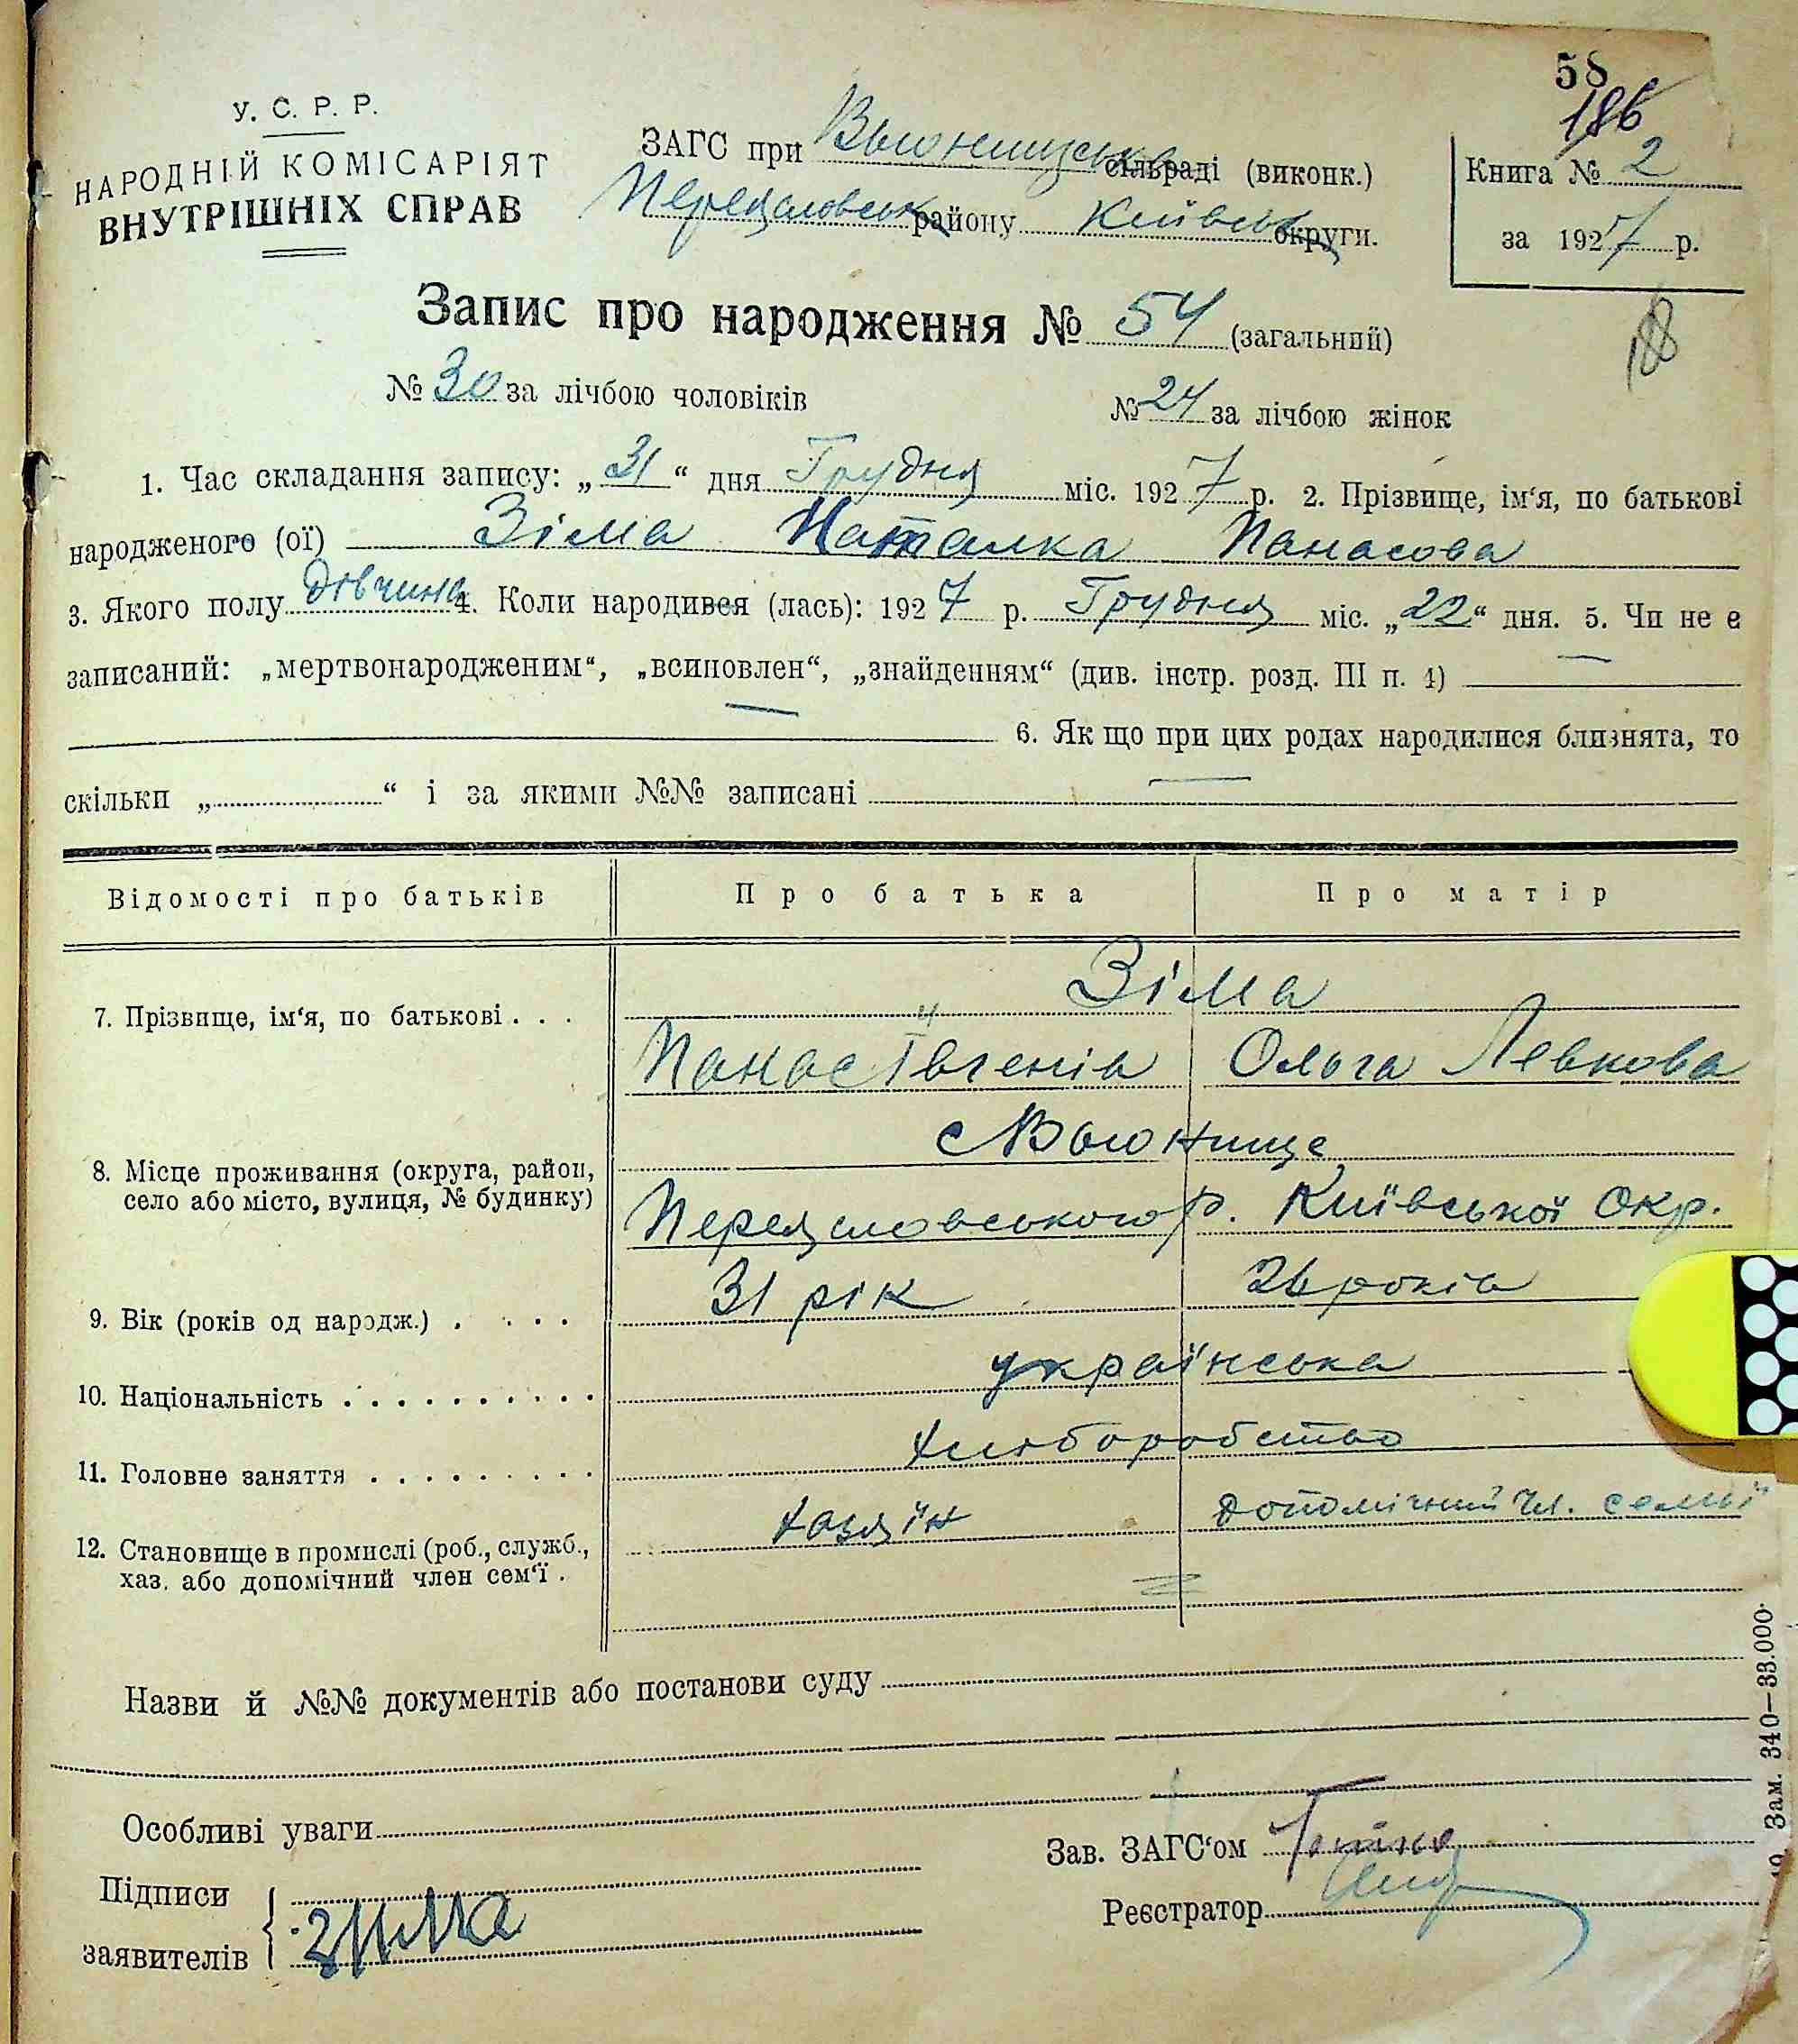 58
186
У. С. Р. Р.
НАРОДНІЙ КОМІСАРІЯТ
ВНУТРІШНІХ СПРАВ
ЗАГС при Вьюницька сільраді (виконк.)
Переяславськ району Київськ округи.
Книга № 2
за 1927 р.
188
Запис про народження № 54 (загальний)
№ 30 за лічбою чоловіків № 24 за лічбою жінок
1. Час складання запису: „31“ дня Грудня міс. 1927 р. 2. Прізвище, ім‘я, по батькові
народженого (ої) Зіма Наталка Панасова
3. Якого полу дівчина 4. Коли народився (лась): 1927 р. Грудня міс. „22“ дня. 5. Чи не є
записаний: „мертвонародженим“, „всиновлен“, „знайденням“ (див. інстр. розд. III п. 4)
6. Як що при цих родах народилися близнята, то
скільки „ “ і за якими №№ записані
Відомості про батьків Про батька Про матір
Зіма
7. Прізвище, ім‘я, по батькові . . .
Панас Івгенів Ольга Левкова
с Вьюнище
8. Місце проживання (округа, район,
село або місто, вулиця, № будинку)
Переяславського р. Київської Окр.
9. Вік (років од народж.) . . . . 31 рік 26 років
10. Національність . . . . . . . . . . українська
11. Головне заняття . . . . . . . . хліборобство
12. Становище в промислі (роб., служб., хазяїн допомічний чл. семьї
хаз. або допомічний член сем‘ї .
Назви й №№ документів або постанови суду
Особливі уваги
Зав. ЗАГС‘ом
Підписи
Реєстратор
заявителів Зима
Зам. 340—33.000